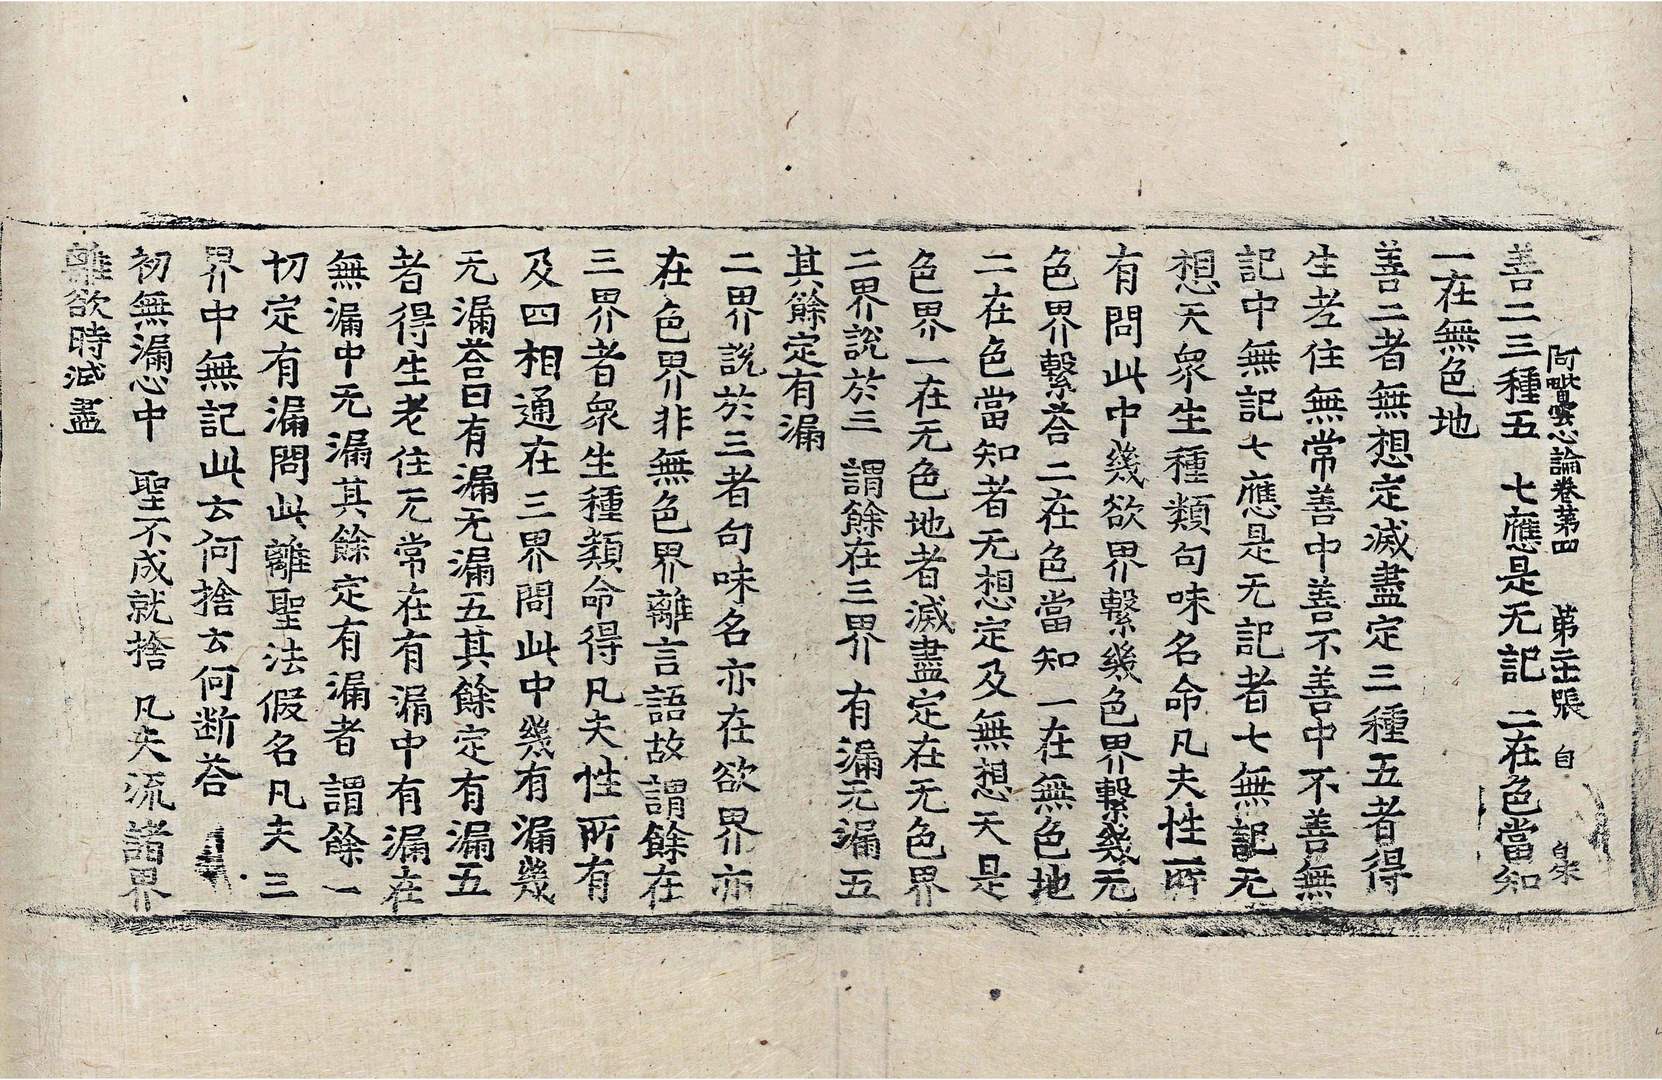 阿毗曇心論卷苐四　苐二十張　自
善二三種五　七應是无記　二在色當知
一在無色地
善二者無想定滅盡定三種五者得
生老住無常善中善不善中不善無
記中無記七應是无記者七無記无
想天衆生種類句味名命凡夫性所
有問此中幾欲界繫幾色界繫幾无
色界繫荅二在色當知一在無色地
二在色當知者无想定及無想天是
色界一在无色地者滅盡定在无色界
二界說於三　謂餘在三界　有漏无漏五
其餘定有漏
二界說於三者句味名亦在欲界亦
在色界非無色界離言語故謂餘在
三界者衆生種類命得凡夫性所有
及四相通在三界問此中幾有漏幾
无漏荅曰有漏无漏五其餘定有漏五
者得生老住无常在有漏中有漏在
無漏中无漏其餘定有漏者謂餘一
切定有漏問此離聖法假名凡夫三
界中無記此云何捨云何断荅
初無漏心中　聖不成就捨　凡夫流諸界
離欲時滅盡